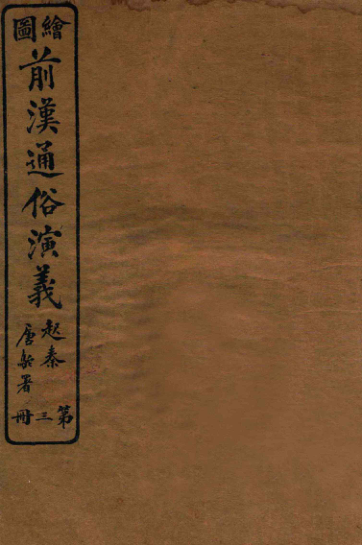 繪圖
前漢通俗演義
起秦
唐駝署
第三冊